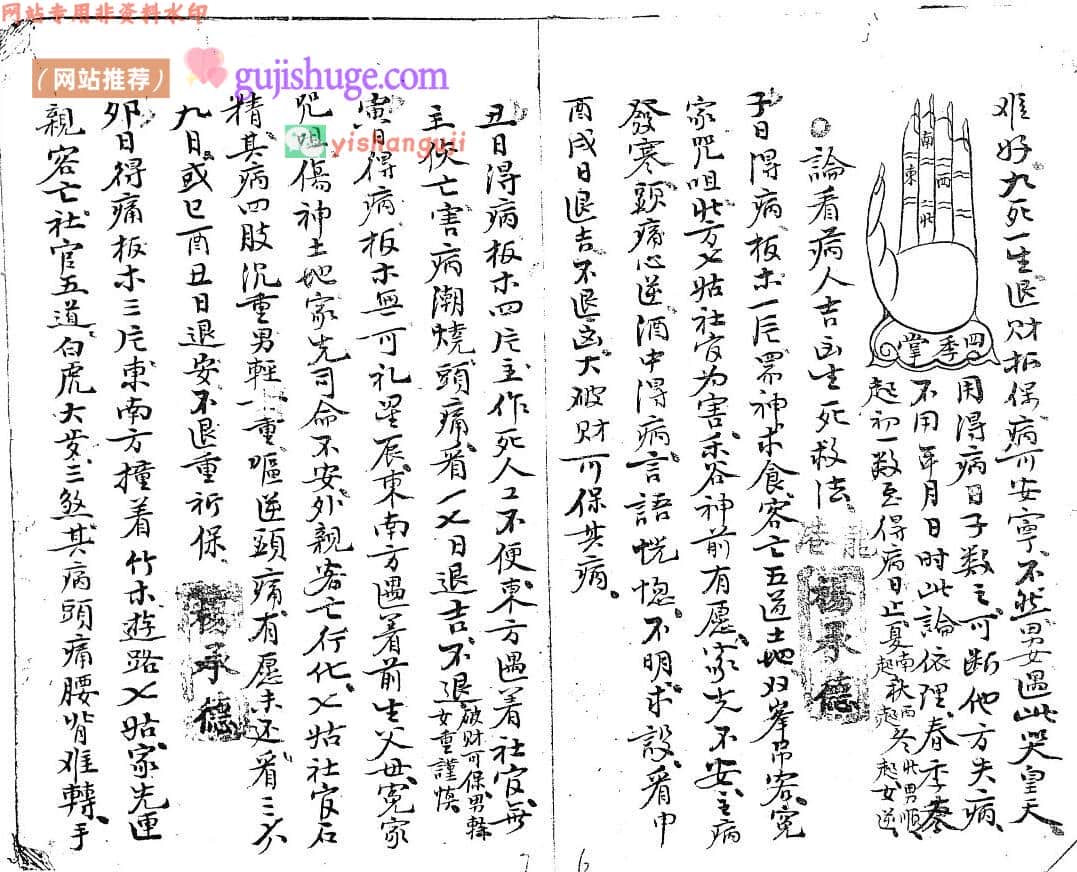 网站专用非资料水印
（网站推荐）
gujishuge.com
yishanguji
难好九死一生退财折保病可安寧不然男女遇此哭皇天
用得病日子数之可断他方失病
不用年月日时此論依理春季
起初一数至得病日止夏南起秋西起冬北起男順女逆
南
東
西
北
四季掌
論看病人吉凶生死救法
楊承德
子日得病板木一片眾神求食客亡五道土地双峯吊客冤
家咒咀北方七姑社官为害禾谷神前有愿家先不安主病
發寒頭痛心逆酒中得病言語恍惚不明求設看申
酉戌日退吉不退凶大破财可保其病
丑日得病板木四片主作死人工不便東方遇着社官無
主使亡害病潮燒頭痛看一七日退吉不退破财可保男輕女重謹慎
寅日得病板木無可礼星辰東南方遇着前生父母冤家
咒咀傷神土地家先司命不安外親客亡行化七姑社官石
精其病四肢沉重男輕女重嘔逆頭痛有愿未还看三六
九日或巳酉丑日退安不退重祈保
楊承德
卯日得病板木三片東南方撞着竹木遊路七姑家先連
親客亡社官五道白虎大岁三煞其病頭痛腰背难轉手
7
6